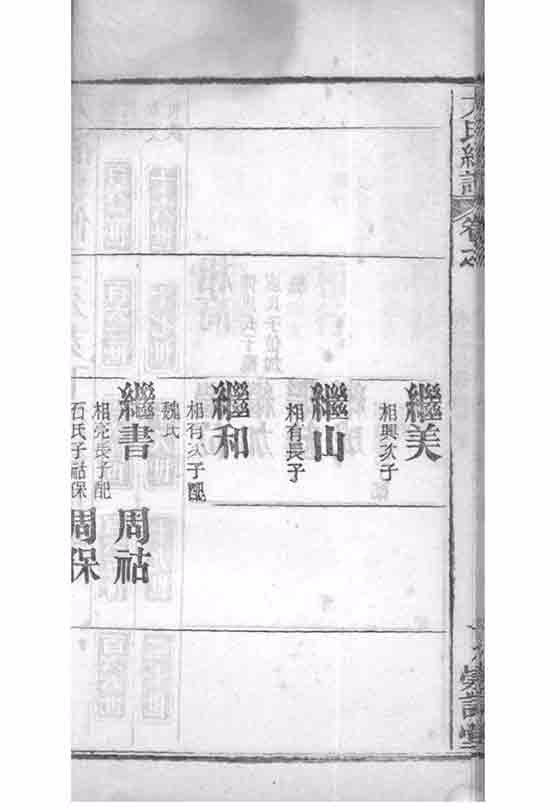 繼美
相興次子
繼山
相有長子
繼和
相有次子配
魏氏
繼書
相亮長子配
石氏子祜保
周祜
周保